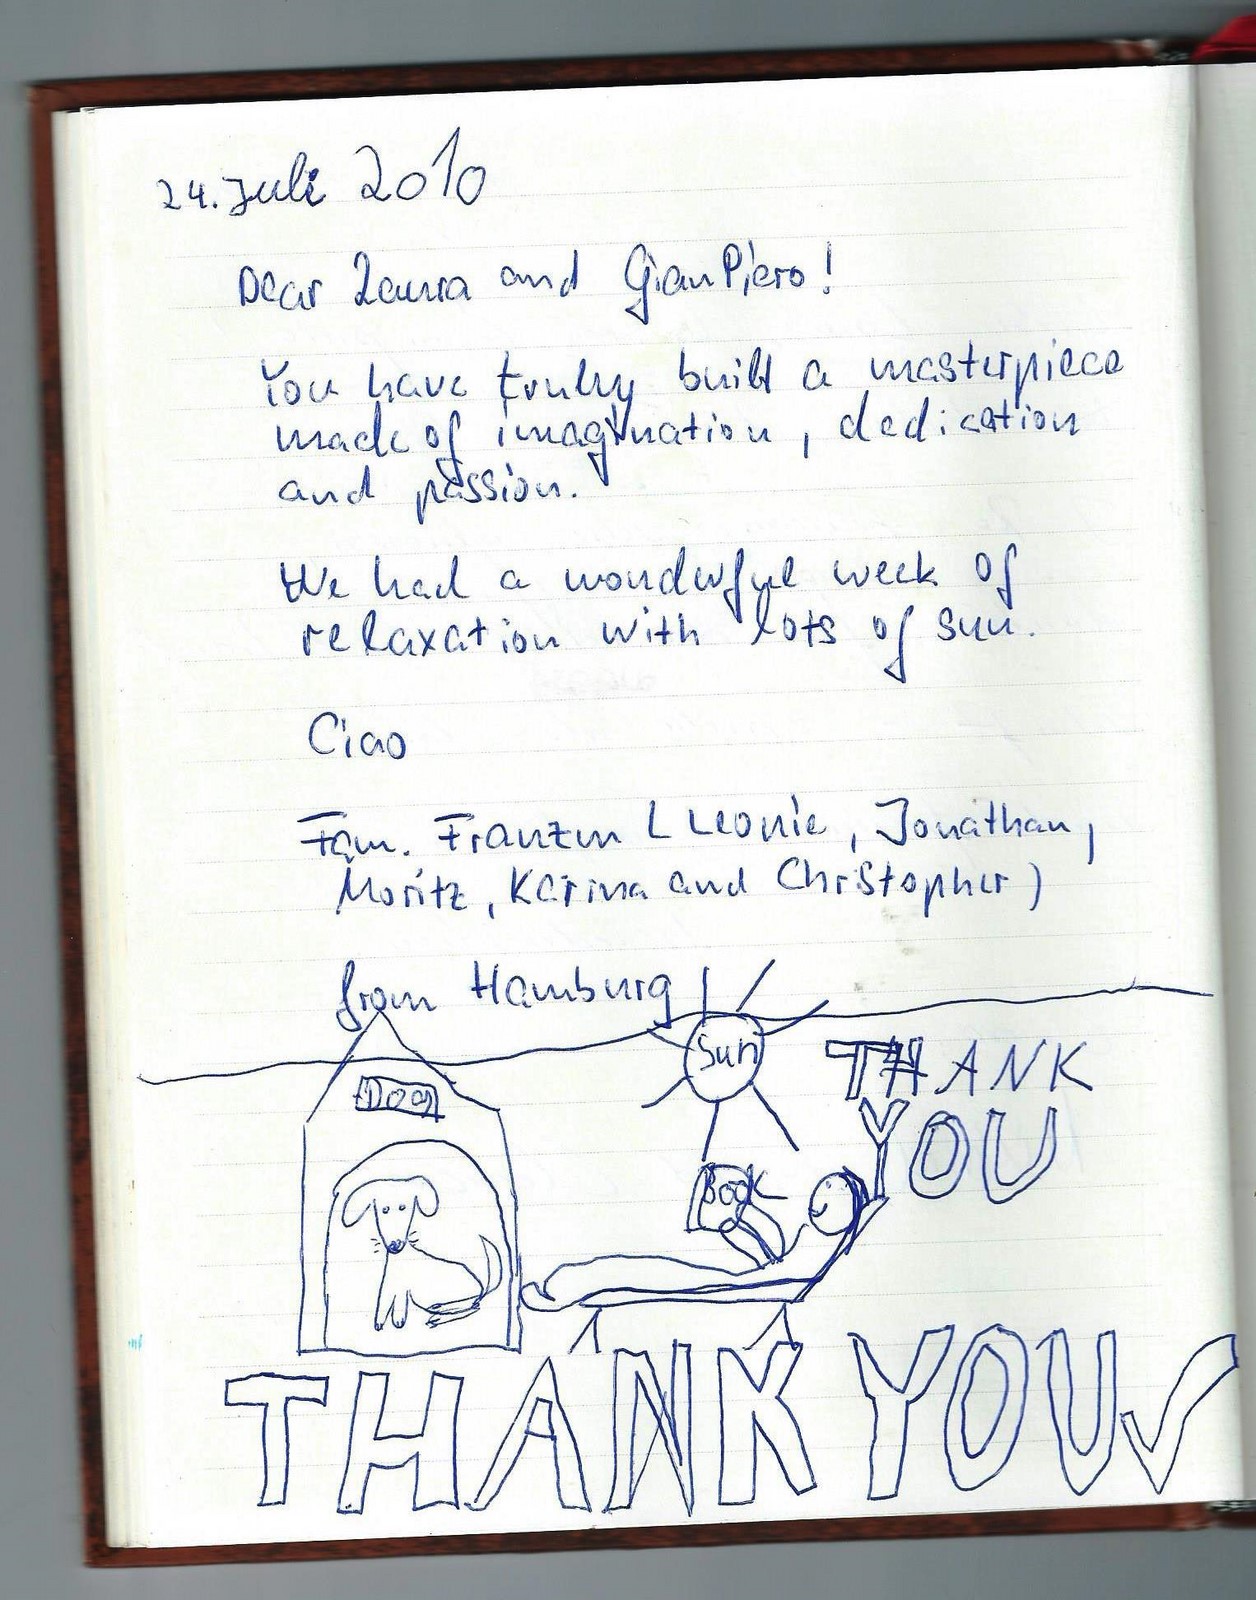 24. Juli 2010
Dear Laura and GianPiero!
You have trulry build a masterpiece
made of imagination, dedication
and passion.
We had a wonderful week of
relaxation with lots of sun.
Ciao
Fam. Franzen ( Leonie, Jonathan,
Moritz, Karina and Christopher)
from Hamburg
Sun
THANK
YOU
DOG
BOOK
THANK YOU